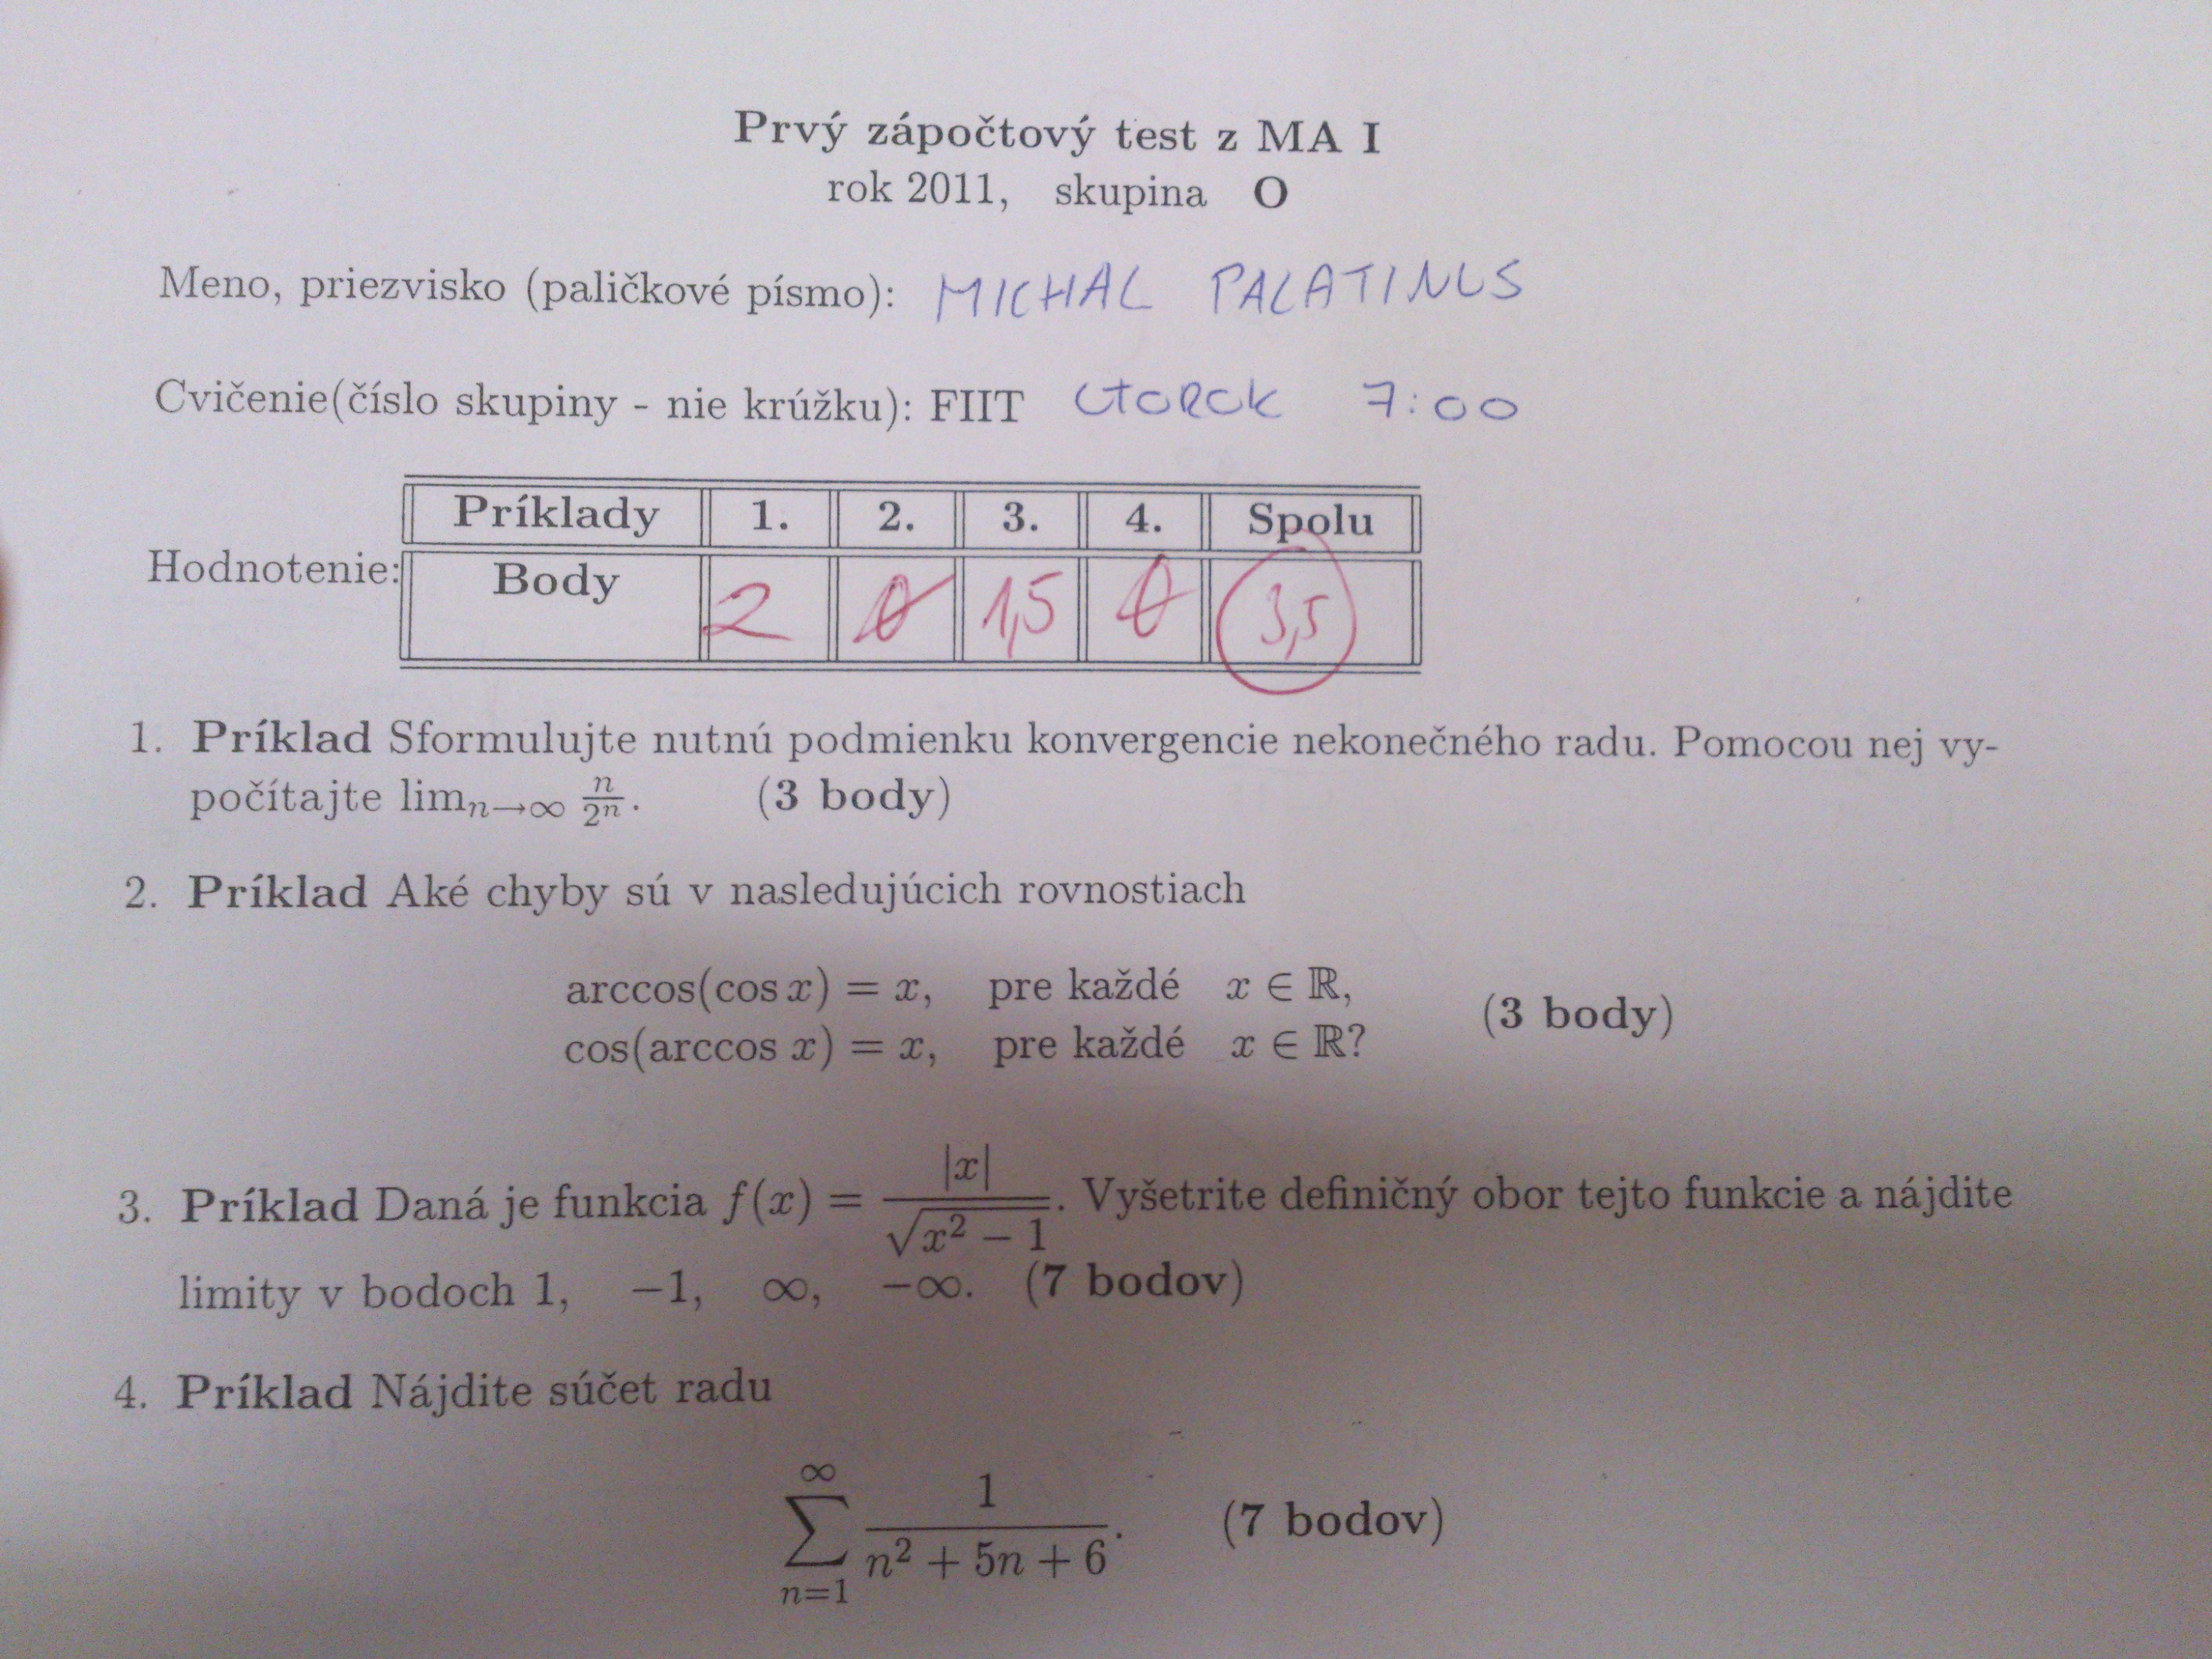 Prvý zápočtový test z MA I
rok 2011, skupina O
Meno, priezvisko (paličkové písmo): MICHAL PALATINUS
Cvičenie(číslo skupiny - nie krúžku): FIIT UTOROK 7:00
Príklady 1. 2. 3. 4. Spolu
Hodnotenie: Body 2 0 1,5 0 3,5
1. Príklad Sformulujte nutnú podmienku konvergencie nekonečného radu. Pomocou nej vy-
počítajte lim_{n→∞} n/2^n. (3 body)
2. Príklad Aké chyby sú v nasledujúcich rovnostiach
arccos(cos x) = x, pre každé x ∈ ℝ,
(3 body)
cos(arccos x) = x, pre každé x ∈ ℝ?
3. Príklad Daná je funkcia f(x) = |x|/√(x² − 1). Vyšetrite definičný obor tejto funkcie a nájdite
limity v bodoch 1, −1, ∞, −∞. (7 bodov)
4. Príklad Nájdite súčet radu
∑_{n=1}^{∞} 1/(n² + 5n + 6). (7 bodov)